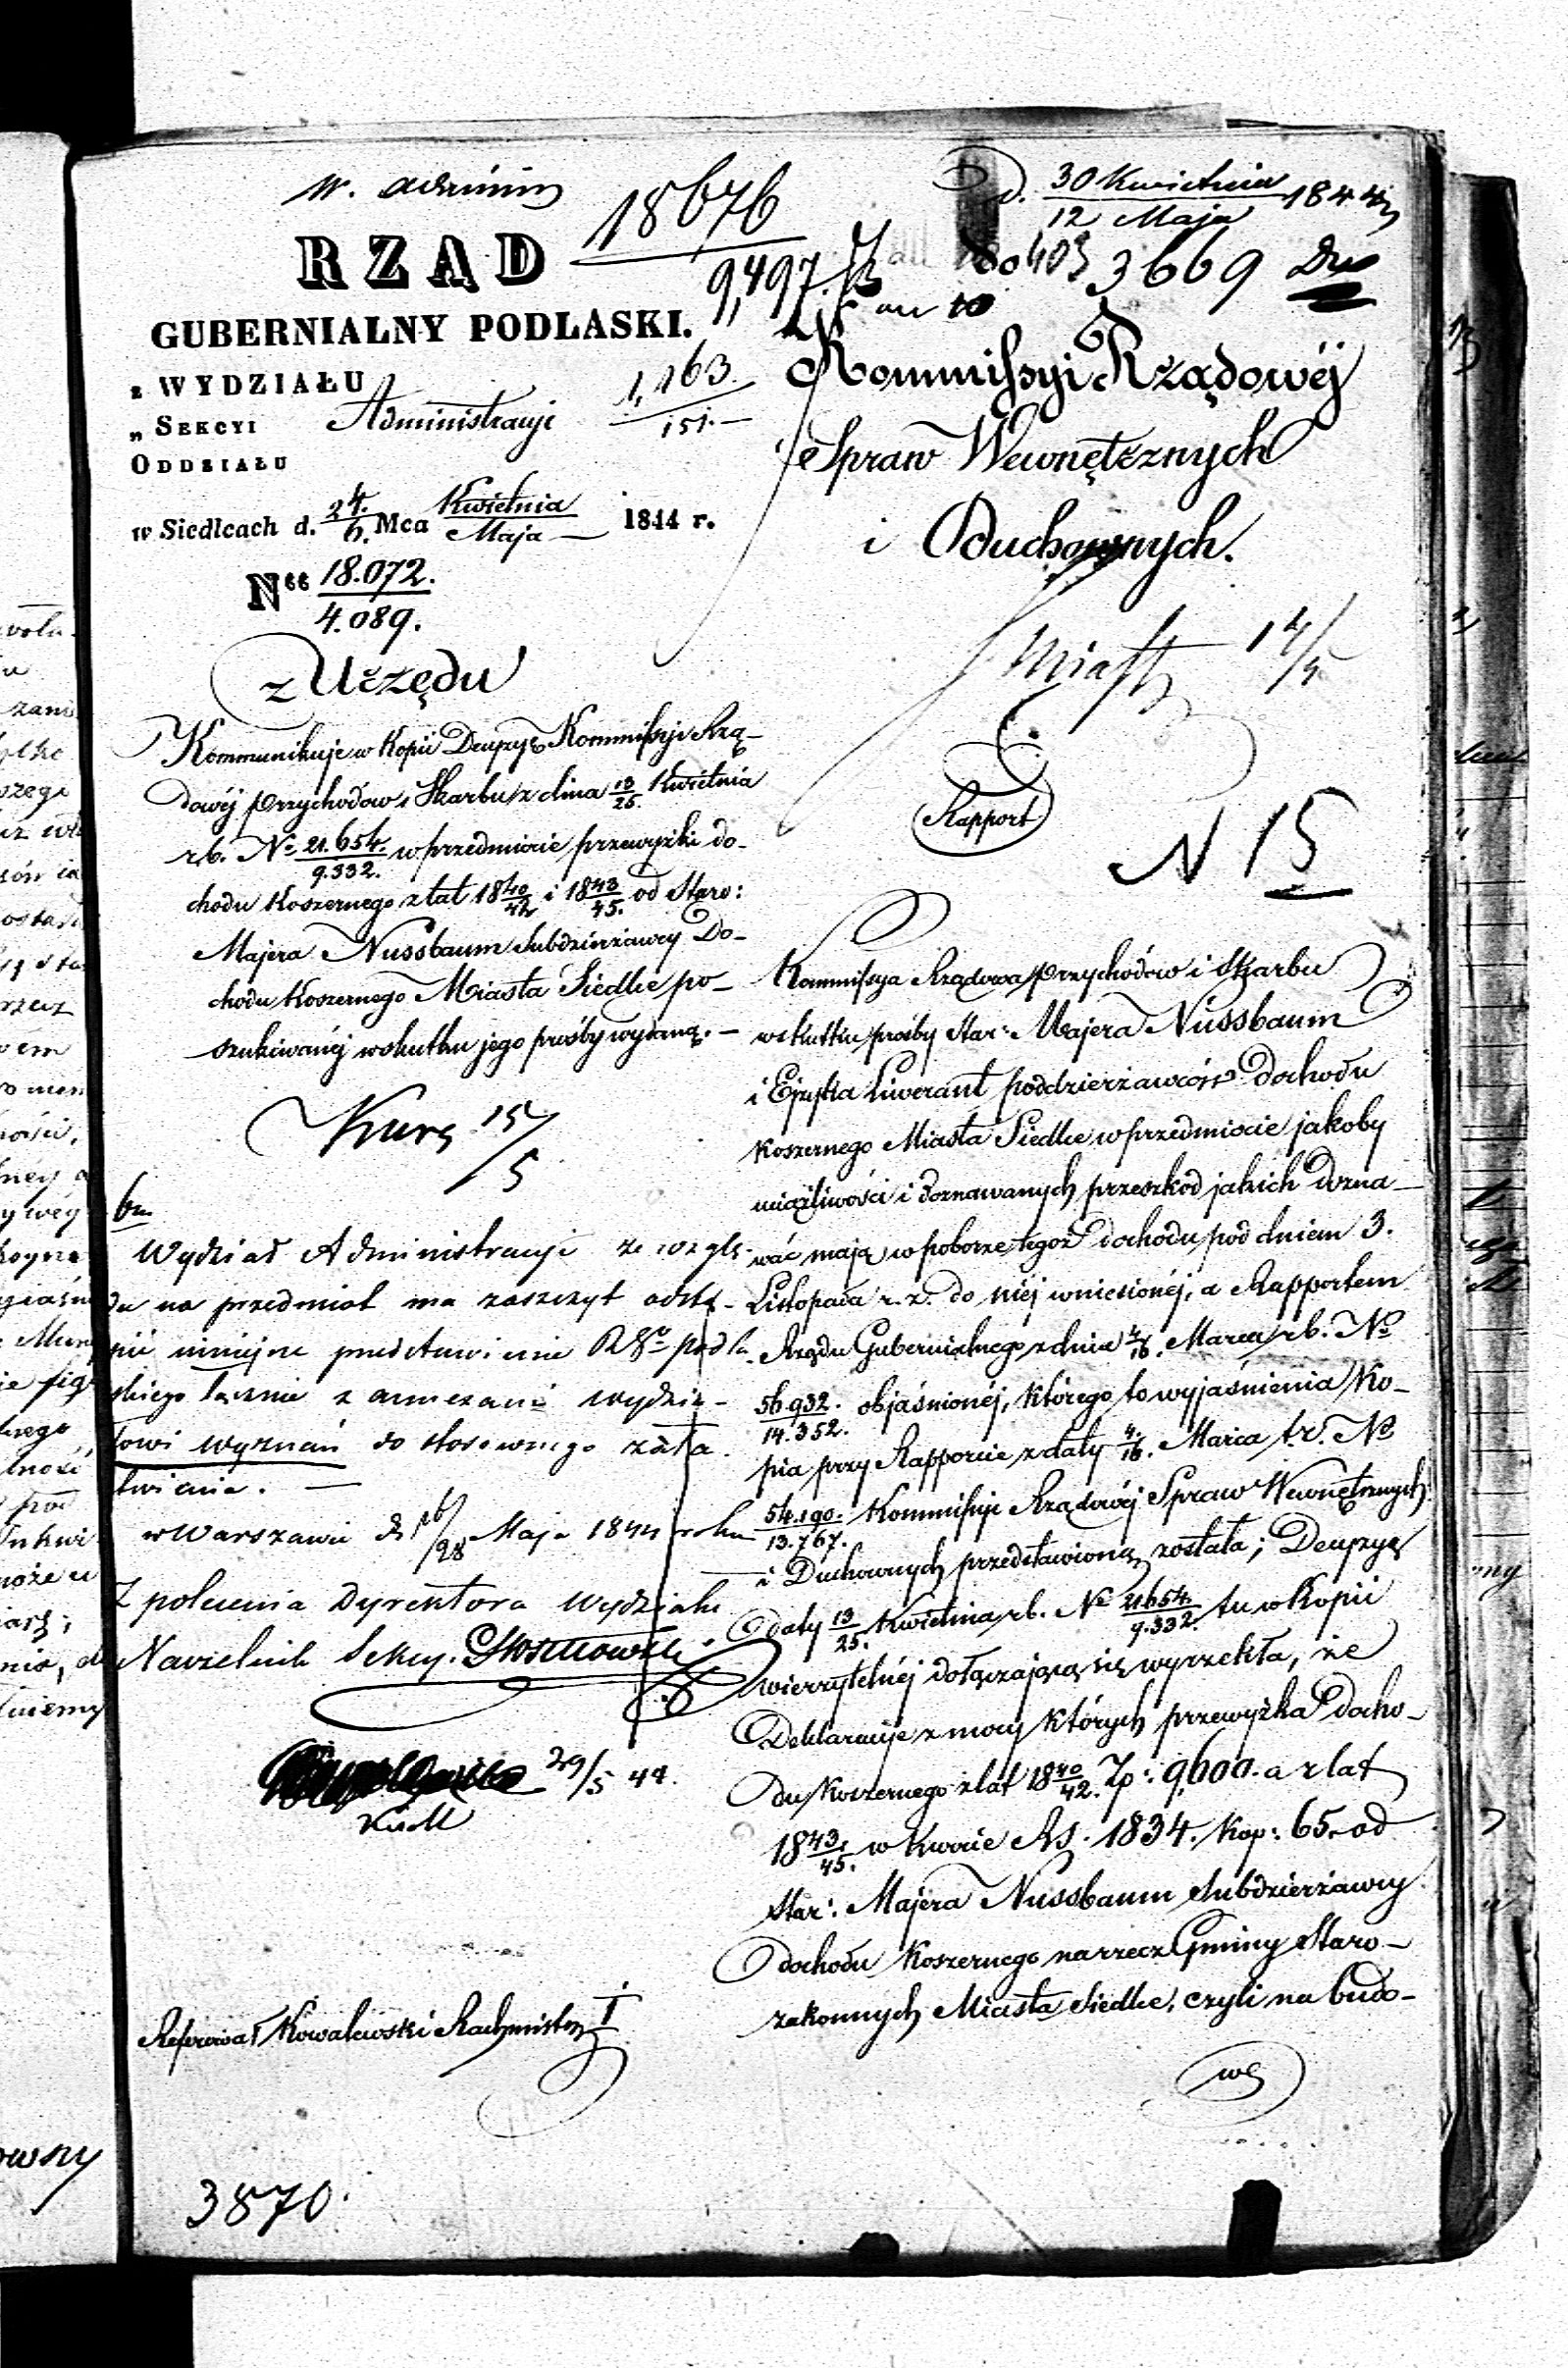 w. admin
18676
9,497.
d. 30 Kwietnia / 12 Maja 1844
do 403 3669
RZĄD
GUBERNIALNY PODLASKI.
z WYDZIAŁU
„ SEKCYI Administracyi
ODDZIAŁU
1,163.
151.
w Siedlcach d. 24./6. Mca Kwietnia/Maja 1844 r.
Nro 18.072./4.089.
z Urzędu
Kommunikuje w kopii Decyzyę Kommissyi Rzą-
dowéj Przychodów i Skarbu z dnia 13/25 Kwietnia
r.b. No 21.654./9.332. w przedmiocie przewyżki do-
chodu Koszernego z lat 1840/42 i 1843/45. od Staro:
Majera Nussbaum Subdzierżawcy Do-
chodu Koszernego Miasta Siedlce po-
szukiwanéj w skutku jego prośby wydaną. —
Kurs 15/5
Wydział Administracyi ze wzglę-
du na przedmiot ma zaszczyt odstą-
pić niniejsze przedstawienie Rządu podla-
skiego łącznie z annexami wydzia-
łowi wyznań do stosownego zała-
twienia. —
w Warszawie d. 16/28 Maja 1844 roku
Z polecenia Dyrektora Wydziału
Naczelnik Sekcyi
29/5 44.
Referował Kowalewski Rachmistrz
3870.
Kommissyi Rządowéj
Spraw Wewnętrznych
i Duchownych.
Miast 14/5
Rapport
N 15
Kommissya Rządowa Przychodów i Skarbu
w skutku prośby Star: Majera Nussbaum
i Liwerant poddzierżawców Dochodu
Koszernego Miasta Siedlce w przedmiocie jakoby
uciążliwości i doznawanych przeszkód jakich dozna-
wać mają w poborze tegoż dochodu pod dniem 3.
Listopada r.z. do niéj wniesionéj, a Rapportem
Rządu Gubernialnego z dnia 4/16. Marca r.b. No
56.932./14.352. objaśnionéj, którego to wyjaśnienia Ko-
pia przy Rapporcie z daty 4/16. Marca t.r. No
54.190./13.767. Kommissyi Rządowéj Spraw Wewnętrznych
i Duchownych przedstawioną została; Decyzyą
z daty 13/25. Kwietnia r.b. No 21654./9.332. tu w Kopii
wierzytelnéj dołączającą się wyrzekła, że
Deklaracye z mocy których przewyżka docho-
du Koszernego z lat 1840/42. Zp: 9,600. a z lat
1843/45. w kwocie Rs. 1834. kop: 65. od
Star: Majera Nussbaum Subdzierżawcy
dochodu Koszernego na rzecz Gminy Staro-
zakonnych Miasta Siedlce, czyli na budo-
wę